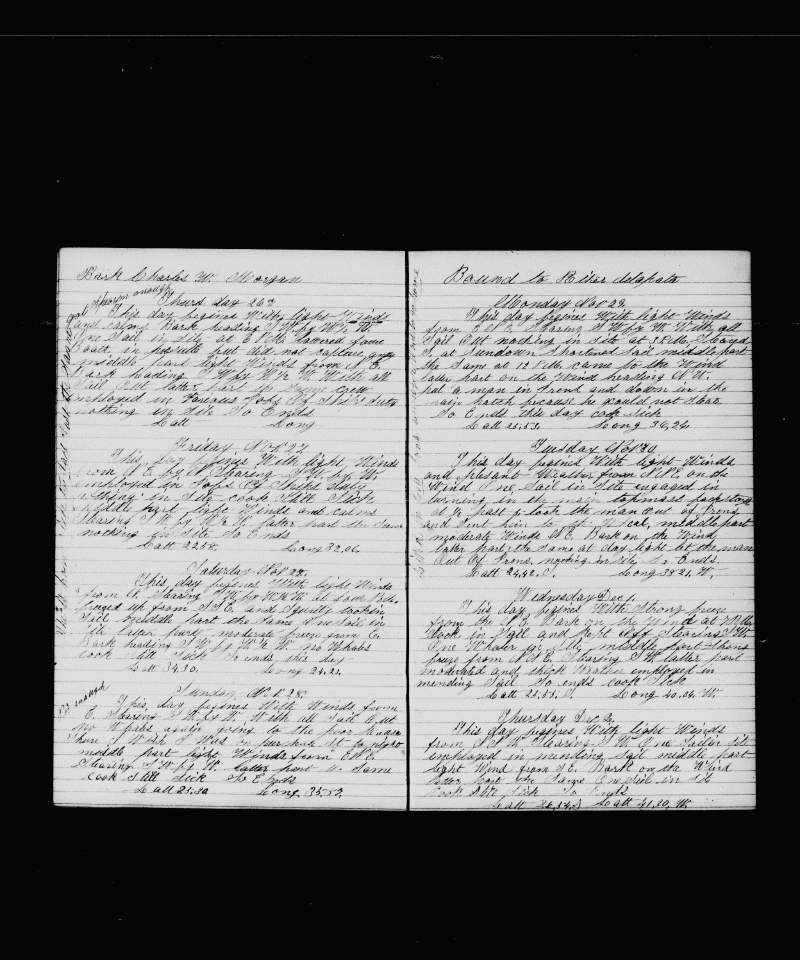 Bark Charles W. Morgan
Thurs day 26th
This day begines With light Winds
and calms Bark heading S W by W 1/2 W
One Sail in Site at 6 P.M. lowered four
Boats in but did not capture any
middle Part light Winds from S E
Bark heading S W by W 1/2 W. With all
Sail Out latter part to Some crew
employed in Various Jobs Of Ships duty
nothing in Site So Ends
Latt Long
Friday Nov 27
This day begines With light Winds
from N E by N Stearing S W by W
employed in Jobs Of Ships duty
nothing in Site cook Still Sick
Middle part light Winds and calms
Stearing S W by W 1/2 W latter part the Same
nothing in Site So Ends
Latt 22.58. Long 32.06
Saturday Nov 28.
This day begines With light Winds
from
up from S.S.E. and Squally took in
Sail middle part the Same One Sail in
Site latter part moderate breeze from E.
Bark heading S W by W 1/2 W no Whales
cook Still Sick So ends this day
Latt 24.30. Long 34.21
Sunday Nov 28.
This day begines With Winds from
E. Stearing S W by W. With all Sail Out
no Whales again going to the poor house
middle part light Winds from E N E.
Stearing S W by W. latter part the Same
cook Still Sick So Ends
Latt 25.30 Long 35.57
Bound to River delaplata
Monday Nov 29.
This day begines With light Winds
from E N E. Stearing S W by W. With all
Sail Out nothing in Site at 3 P.M.
S. at Sundown Shortened Sail middle part
the Same at 12 P.M. came to the Wind
latter part on the Wind heading N. W.
had a man in Irons and down in the
main hatch because he would not
So Ends this day cook Sick
Latt 25.53. Long 36.24
Tuesday Nov 30
This day begines With light Winds
and plesant Weather from N.N.E. on the
Wind One Sail in Site engaged in
turning in the main topmast back stays
at 1/2 past 6 took the man Out of Irons
and Sent him to the Wheel, middle part
moderate Winds N E. Bark on the Wind
latter part the Same at day light let the man
Out Of Irons, nothing in Site So Ends.
Latt 24.42. S. Long 38.21. W.
Wednesday Dec 1.
This day begines With Strong breeze
from the N. E. Bark on the Wind at 7 P.M.
took in Sail and Kept off Stearing S W
One Whaler in Site middle part Strong
breeze from N N E. Stearing S W. latter part
moderated and thick Weather employed in
mending Sail So ends cook Sick
Latt 25.55. S Long 40.04. W
Thursday Dec 2,
This day begines With light Winds
from Stearing S W. One Sail in Site
employed in mending Sail middle part
light Wind from S E. Bark on the Wind
latter Part the Same One Sail in Site
Cook Still Sick So Ends
Latt 26.54. S Latt 41.30. W.